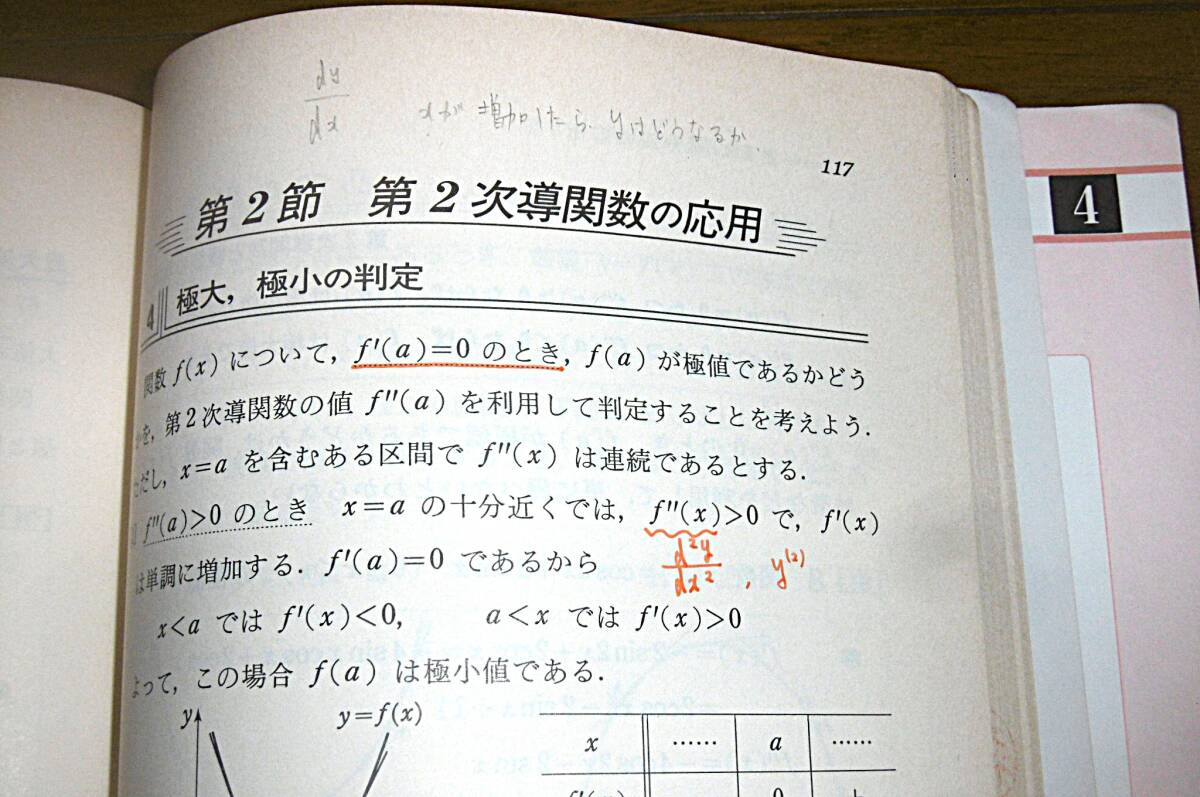 dy/dx xが増加したら、yはどうなるか
117
第2節 第2次導関数の応用
4
4 極大，極小の判定
関数 f(x) について，f'(a)=0 のとき，f(a) が極値であるかどう
を，第2次導関数の値 f''(a) を利用して判定することを考えよう．
ただし，x=a を含むある区間で f''(x) は連続であるとする．
f''(a)>0 のとき x=a の十分近くでは，f''(x)>0 で，f'(x)
d²y/dx² , y⁽²⁾
は単調に増加する．f'(a)=0 であるから
x<a では f'(x)<0， a<x では f'(x)>0
よって，この場合 f(a) は極小値である．
y y=f(x)
x …… a ……